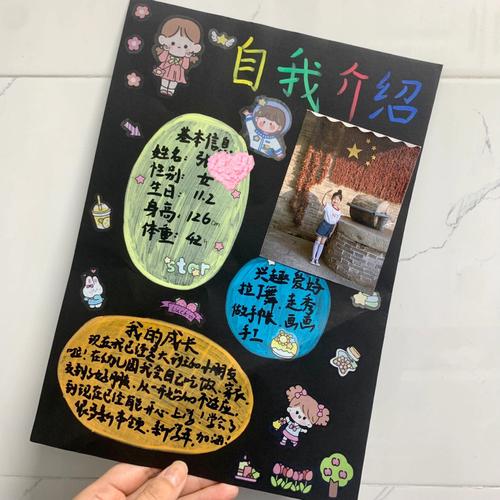 自我介绍
基本信息
姓名：张
性别：女
生日：11.2
身高：126cm
体重：42
star
兴趣爱好
拉丁舞 走秀
做手帐 画画
手工
我的成长
现在我已经是大班的小朋友
啦！在幼儿园我会自己吃饭、
到现在已经能开心上学！学会了
很多新本领，新学年，加油！